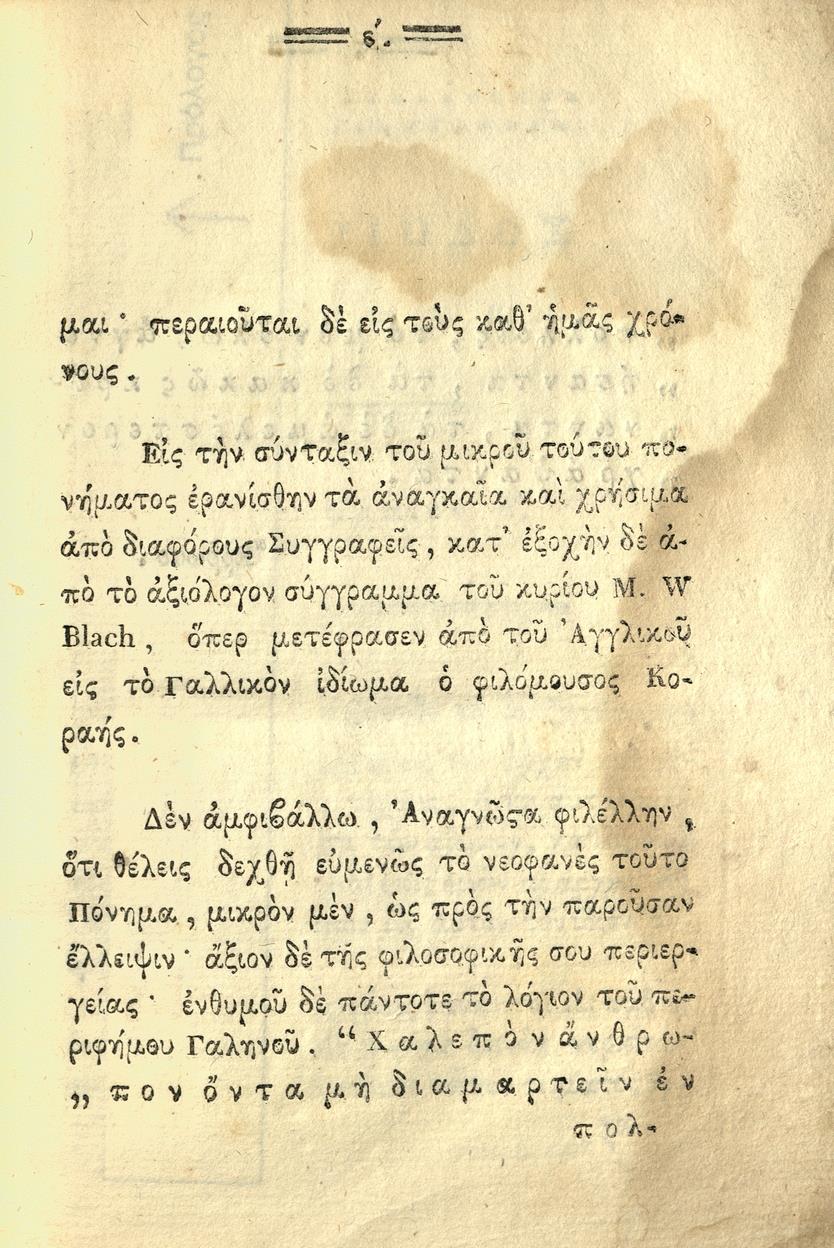 ε'.
μαι · περαιοῦται δὲ εἰς τοὺς καθ' ἡμᾶς χρό-
νους .
Εἰς τὴν σύνταξιν τοῦ μικροῦ τούτου πο-
νήματος ἐρανίσθην τὰ ἀναγκαῖα καὶ χρήσιμα
ἀπὸ διαφόρους Συγγραφεῖς , κατ' ἐξοχὴν δὲ ἀ-
πὸ τὸ ἀξιόλογον σύγγραμμα τοῦ κυρίου M. W
Blach , ὅπερ μετέφρασεν ἀπὸ τοῦ Ἀγγλικοῦ
εἰς τὸ Γαλλικὸν ἰδίωμα ὁ φιλόμουσος Κο-
ραής .
Δὲν ἀμφιβάλλω , Ἀναγνῶϛα φιλέλλην ,
ὅτι θέλεις δεχθῆ εὐμενῶς τὸ νεοφανὲς τοῦτο
Πόνημα , μικρὸν μὲν , ὡς πρὸς τὴν παροῦσαν
ἔλλειψιν · ἄξιον δὲ τῆς φιλοσοφικῆς σου περιερ-
γείας · ἐνθυμοῦ δὲ πάντοτε τὸ λόγιον τοῦ πε-
ριφήμου Γαληνοῦ . “ Χαλεπὸν ἄνθρω-
„ πον ὄντα μὴ διαμαρτεῖν ἐν
πολ-